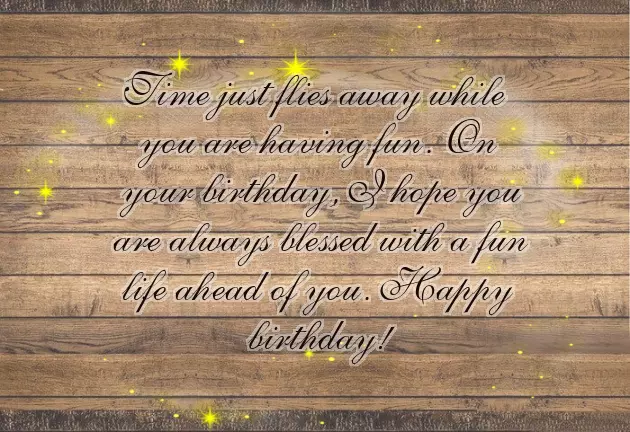 Time just flies away while
you are having fun. On
your birthday, I hope you
are always blessed with a fun
life ahead of you. Happy
birthday!